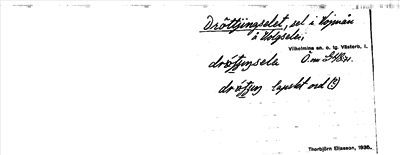 Dröttjingselet, sel i Kojmån
å Volgselei,
Vilhelmina sn. o. tg. Västerb. l.
dröttjingsele
dröttjing lapskt ord (?)
Thorbjörn Eliasson, 1936.